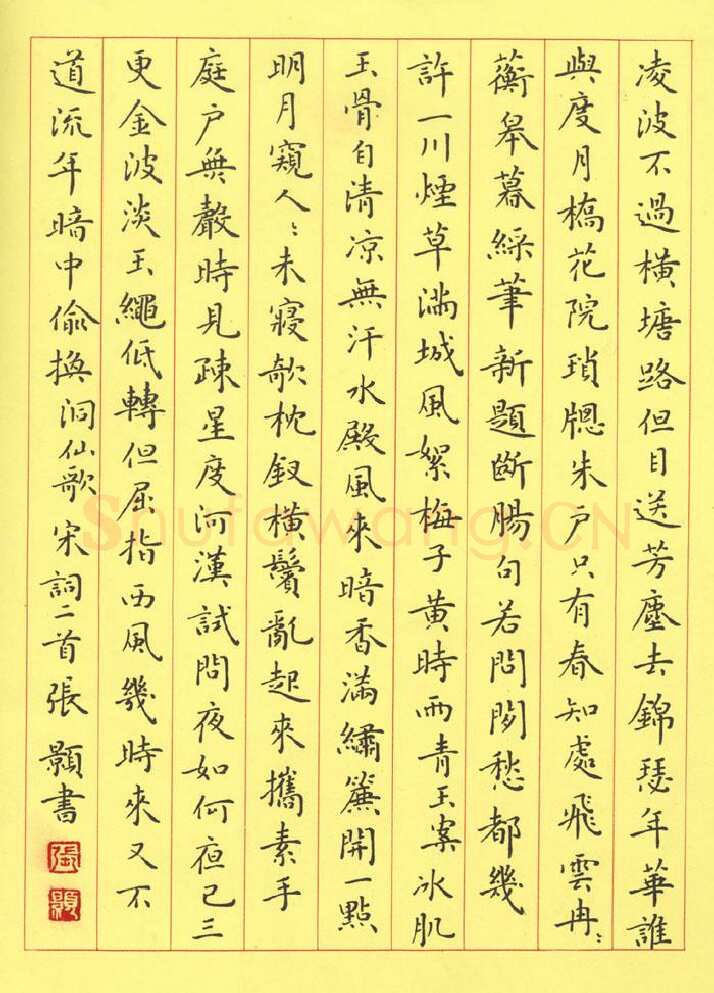 凌波不過橫塘路但目送芳塵去錦瑟年華誰
與度月橋花院瑣牕朱戶只有春知處飛雲冉〻
蘅皋暮綵筆新題斷腸句若問閑愁都幾
許一川煙草滿城風絮梅子黃時雨青玉案冰肌
玉骨自清涼無汗水殿風來暗香滿繡簾開一點
明月窺人〻未寢欹枕釵橫鬢亂起來攜素手
庭戶無聲時見疎星度河漢試問夜如何夜已三
更金波淡玉繩低轉但屈指西風幾時來又不
道流年暗中偷換洞仙歌宋詞二首張顥書
張
顥
Shufawang.CN